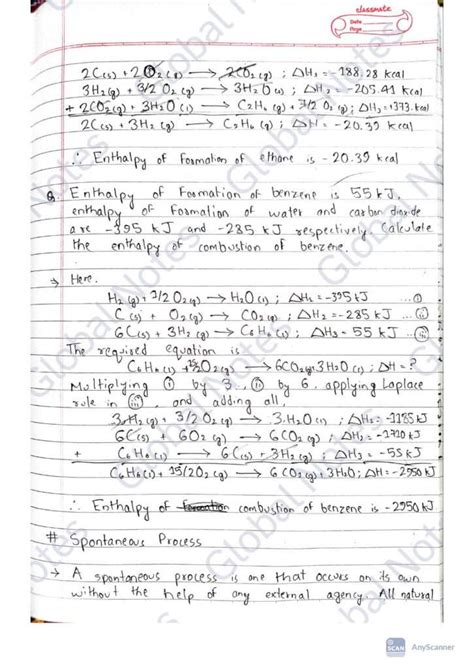 classmate
Date
Page
2C(s) + 2O2(g) → 2CO2(g) ; ΔH1 = -188.28 kcal
3H2(g) + 3/2 O2(g) → 3H2O(l) ; ΔH2 = -205.41 kcal
+ 2CO2(g) + 3H2O(l) → C2H6(g) + 7/2 O2(g) ; ΔH3 = +373. kcal
2C(s) + 3H2(g) → C2H6(g) ; ΔH = -20.39 kcal
∴ Enthalpy of formation of ethane is -20.39 kcal
Q. Enthalpy of formation of benzene is 55 kJ,
enthalpy of formation of water and carbon dioxide
are -395 kJ and -285 kJ respectively. Calculate
the enthalpy of combustion of benzene.
→ Here,
H2(g) + 1/2 O2(g) → H2O(l) ; ΔH1 = -395 kJ ...(i)
C(s) + O2(g) → CO2(g) ; ΔH2 = -285 kJ ...(ii)
6C(s) + 3H2(g) → C6H6(l) ; ΔH3 = 55 kJ ...(iii)
The required equation is
C6H6(l) + 15/2 O2(g) → 6CO2(g) + 3H2O(l) ; ΔH = ?
Multiplying (i) by 3, (ii) by 6, applying Laplace
rule in (iii), and adding all,
3H2(g) + 3/2 O2(g) → 3H2O(l) ; ΔH1 = -1185 kJ
6C(s) + 6O2(g) → 6CO2(g) ; ΔH2 = -1710 kJ
+ C6H6(l) → 6C(s) + 3H2(g) ; ΔH3 = -55 kJ
C6H6(l) + 15/2 O2(g) → 6CO2(g) + 3H2O ; ΔH = -2950 kJ
∴ Enthalpy of formation combustion of benzene is -2950 kJ
# Spontaneous Process
→ A spontaneous process is one that occurs on its own
without the help of any external agency. All natural
Global Notes
SCAN
AnyScanner